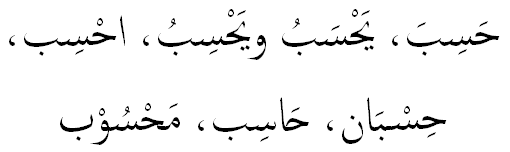 حَسِبَ، يَحْسَبُ ويَحْسِبُ، احْسِب،
حِسْبَان، حَاسِب، مَحْسُوْب